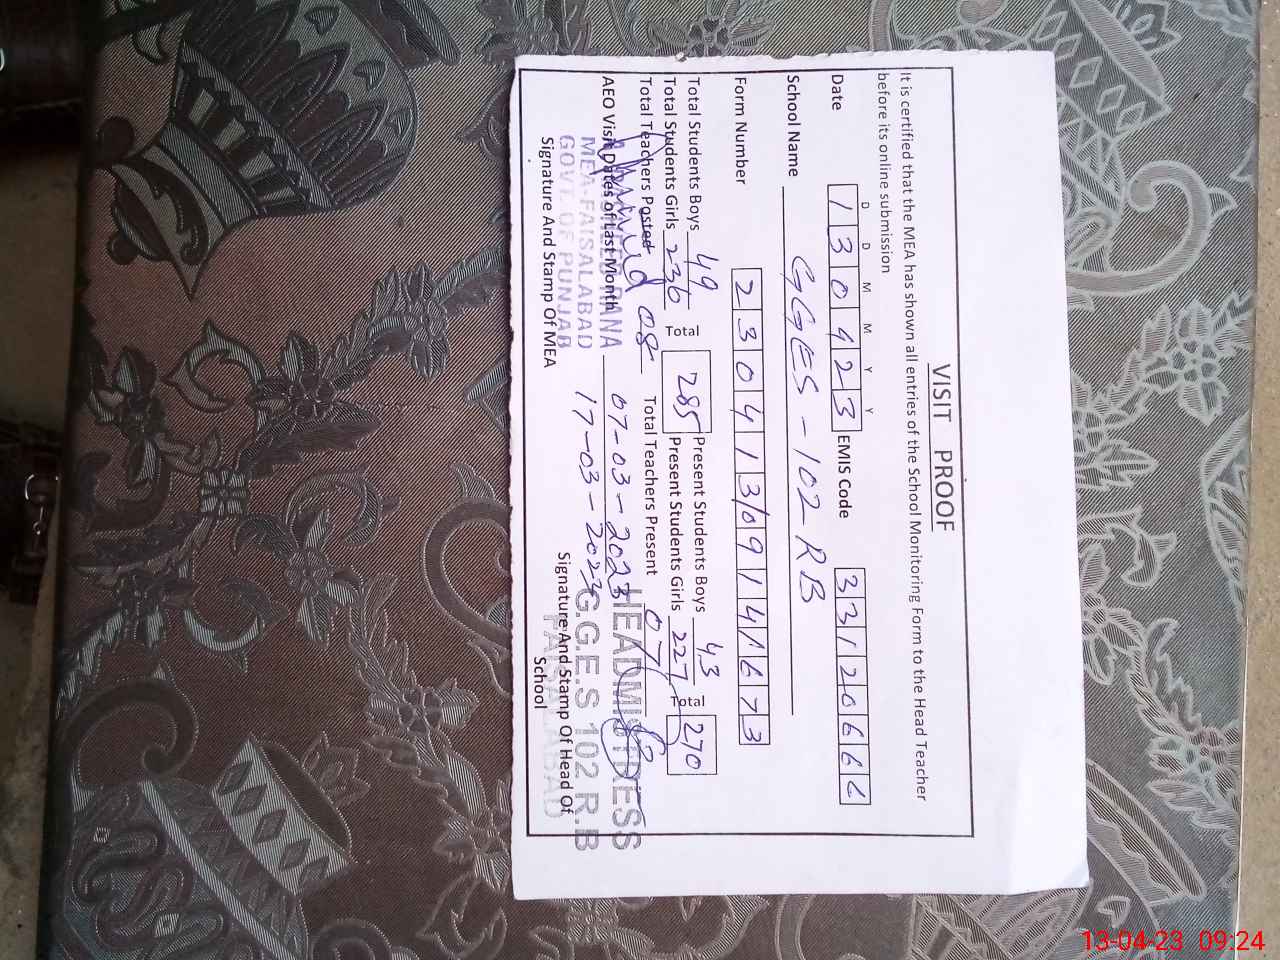 VISIT PROOF
It is certified that the MEA has shown all entries of the School Monitoring Form to the Head Teacher
before its online submission
D D M M Y Y
Date 130423 EMIS Code 33120666
School Name GGES-102 RB
Form Number 23041309141673
Total Students Boys 49 Present Students Boys 43
Total 285 Total 270
Total Students Girls 236 Present Students Girls 227
Total Teachers Posted 08 Total Teachers Present 07
AEO Visit Dates of Last Month 07-03-2023
17-03-2023
RANA
MEA-FAISALABAD
GOVT. OF PUNJAB
Signature And Stamp Of MEA
HEADMISTRESS
G.G.E.S 102 R.B
FAISALABAD
Signature And Stamp Of Head Of
School
13-04-23 09:24